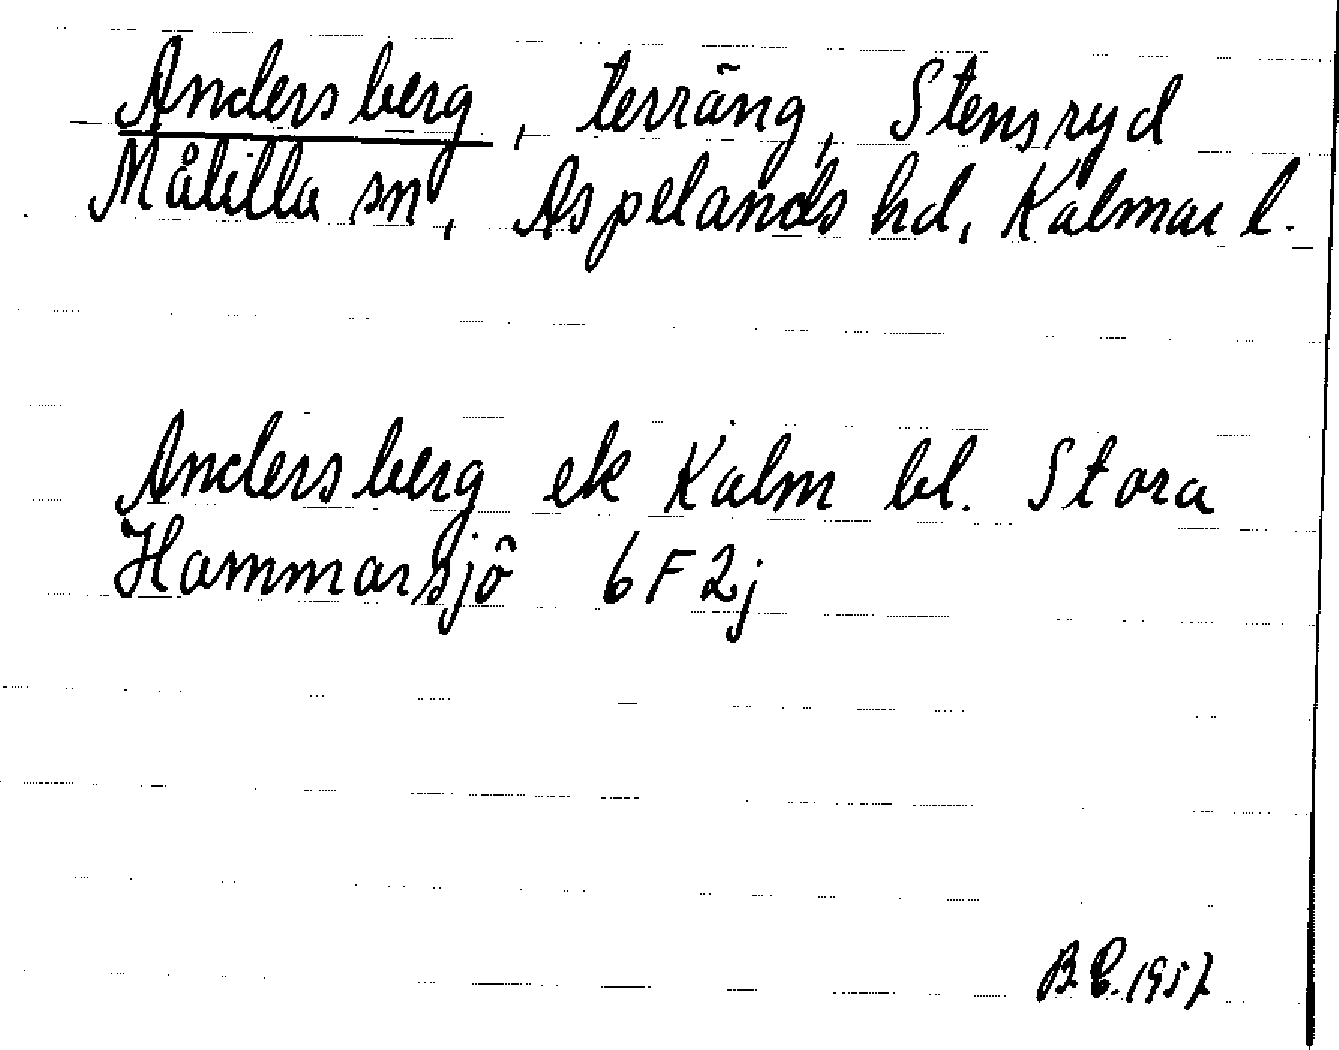 Andersberg, terräng, Stensryd
Målilla sn, Aspelands hd, Kalmar l.
Andersberg ek Kalm bl. Stora
Hammarsjö 6F2j
B.E. 1957